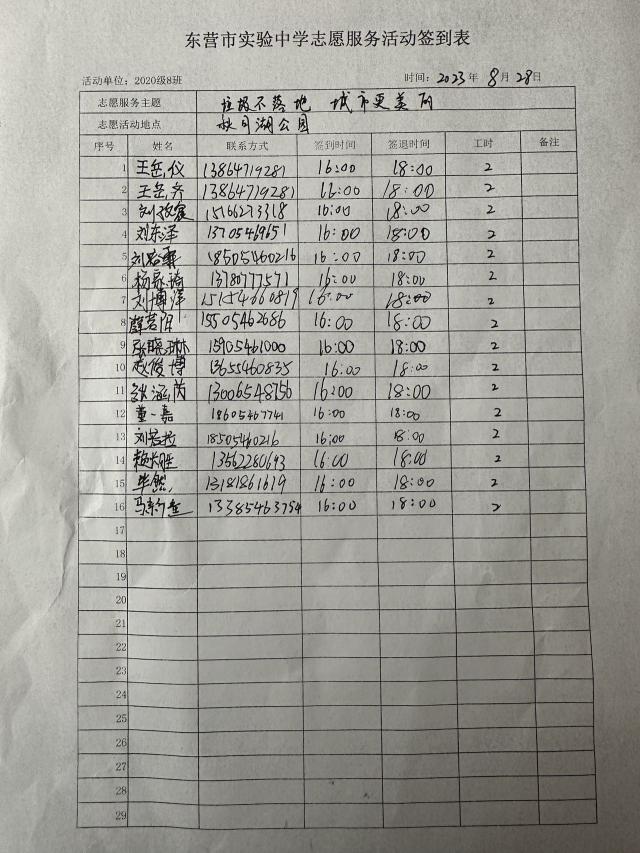 东营市实验中学志愿服务活动签到表
活动单位：2020级8班 时间：2023年 8月 28日
志愿服务主题 垃圾不落地 城市更美丽
志愿活动地点 秋月湖公园
序号 姓名 联系方式 签到时间 签退时间 工时 备注
1 王岳仪 13864719281 16:00 18:00 2
2 王岳齐 13864719281 16:00 18:00 2
3 15166273318 16:00 18:00 2
4 刘东泽 13705469651 16:00 18:00 2
5 18505460216 16:00 18:00 2
6 13780777571 16:00 18:00 2
7 刘博洋 16:00 18:00 2
8 15505462686 16:00 18:00 2
9 张晓琳 15905461000 16:00 18:00 2
10 赵俊博 13655460835 16:00 18:00 2
11 13006548756 16:00 18:00 2
12 董一嘉 18605467741 16:00 18:00 2
13 18505460216 16:00 18:00 2
14 13562280693 16:00 18:00 2
15 毕然 13181861619 16:00 18:00 2
16 13385463754 16:00 18:00 2
17
18
19
20
21
22
23
24
25
26
27
28
29